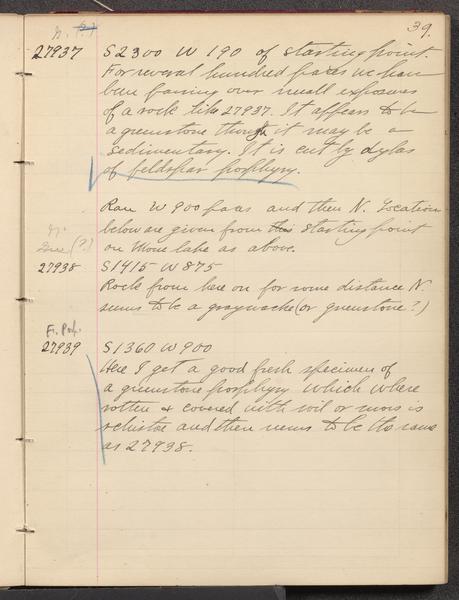 39.
Gr. (?)
27937 S2300 W 190 of starting point.
For several hundred paces we have
been passing over small exposures
of a rock like 27937. It appears to be
a greenstone though it may be a
sedimentary. It is cut by dykes
of feldspar porphyry.
Ran W 900 paces and then N. Locations
below are given from this starting point
on Moose lake as above.
(?)
27938 S1415 W 875
Rock from here on for some distance N.
seems to be a graywacke (or greenstone?)
Fr. Por.
27939 S1360 W 900
Here I get a good fresh specimen of
a greenstone porphyry which where
rotten & covered with soil or moss is
schistose and then seems to be the same
as 27938.